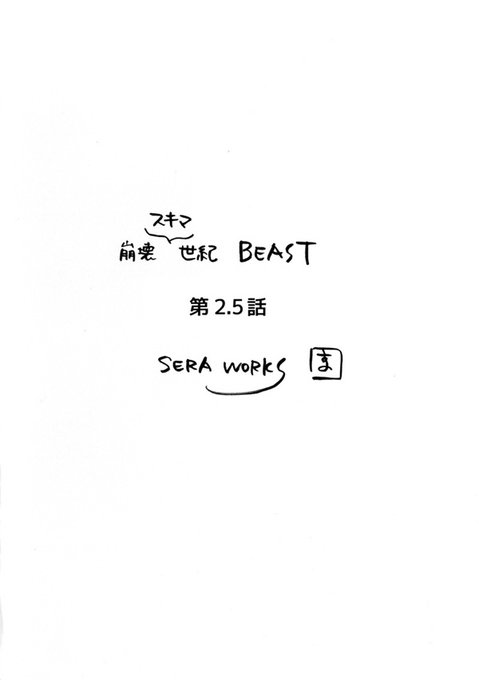 スキマ
崩壊 世紀 BEAST
第2.5話
SERA WORKS ま